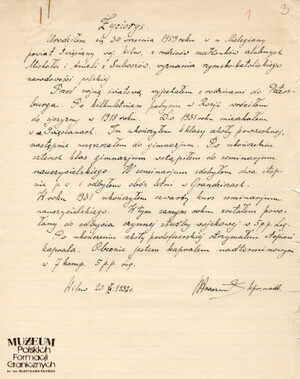 1
3
Życiorys
Urodziłem się 30 września 1909 roku w m. Malegiany
powiat Święciany woj. Wilno, z rodziców małżonków ślubnych
Michała i Anieli z wyznania rzymsko-katolickiego
narodowości polskiej.
Przed wojną światową wyjechałem z rodzicami do Peters-
burga. Po kilkuletnim pobycie w Rosji wróciłem
do ojczyzny w 1918 roku. Do 1931 mieszkałem
w Święcianach. Tu ukończyłem 6 klasę szkoły powszechnej,
następnie uczęszczałem do gimnazjum. Po ukończeniu
czterech klas gimnazjum wstąpiłem do seminarjum
nauczycielskiego. W seminarjum zdobyłem dwa stop-
nie p. w. i odbyłem obóz letni w
W roku 1931 ukończyłem czwarty kurs seminarjum
nauczycielskiego. W tym samym roku zostałem powo-
łany do odbycia czynnej służby wojskowej w 5 p.p. Leg.
Po ukończeniu szkoły podoficerskiej otrzymałem stopień
kaprala. Obecnie jestem kapralem nadterminowym
w 7 komp. 5 p.p. Leg.
Wilno 20
kpr. nadt.
MUZEUM
Polskich
Formacji
Granicznych